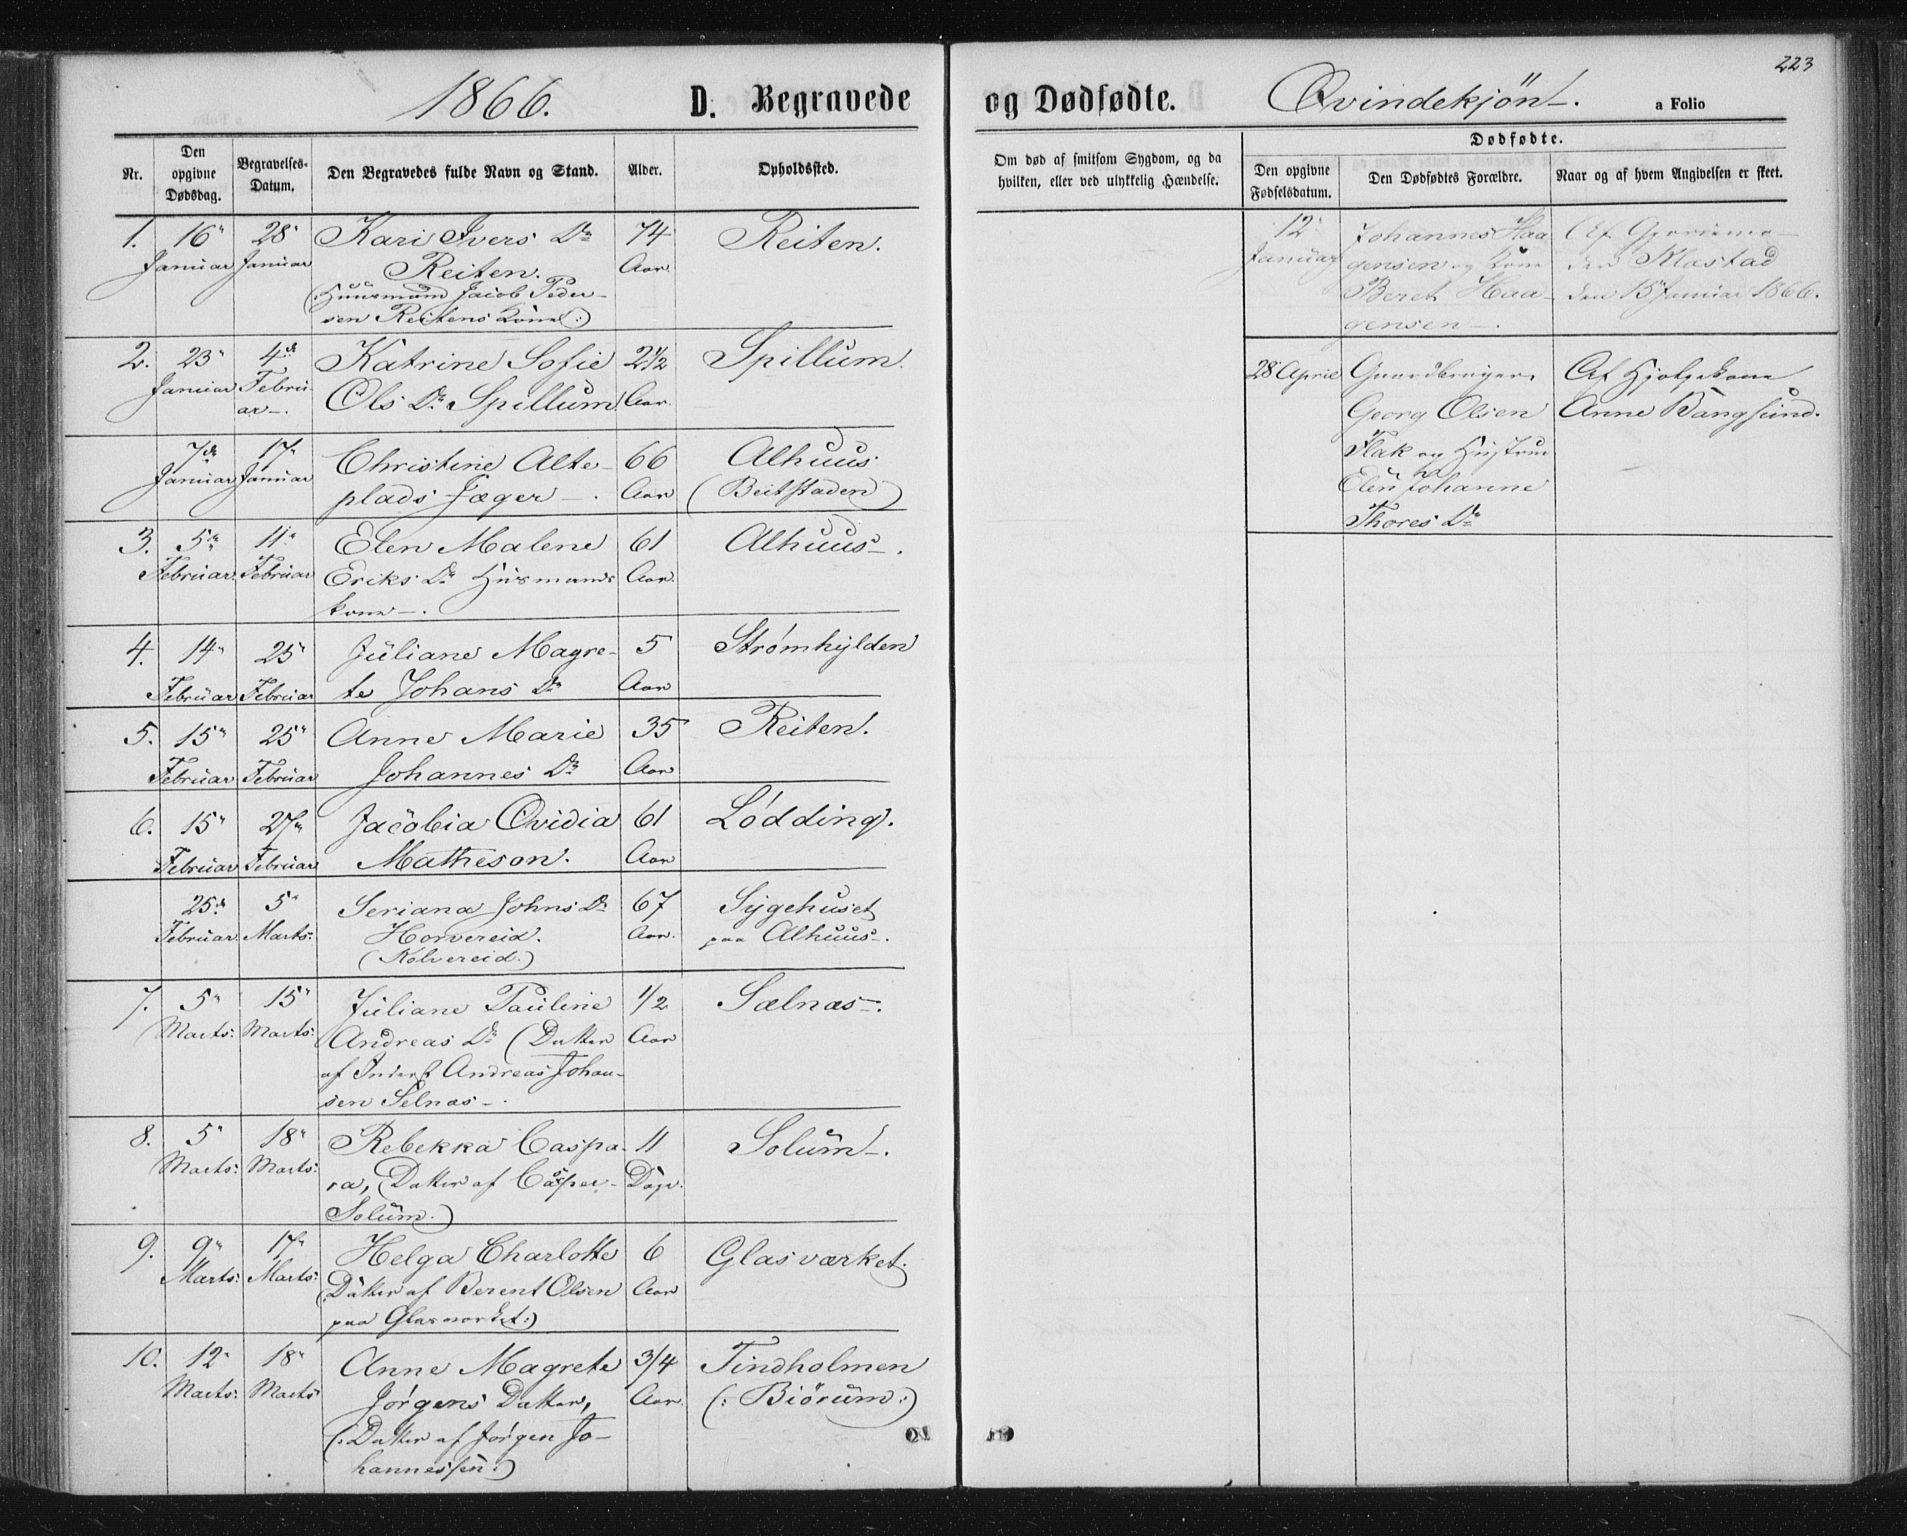 223
1866. D. Begravede og Dødfødte. Qvindekjøn. a Folio
Nr.
Den opgivne Dødsdag.
Begravelses-Datum.
Den Begravedes fulde Navn og Stand.
Alder.
Opholdssted.
Om død af smitsom Sygdom, og da
hvilken, eller ved ulykkelig Hændelse.
Dødfødte.
Den opgivne Fødselsdatum.
Den Dødfødtes Forældre.
Naar og af hvem Angivelsen er skeet.
1. 16 28 Kari Ivers Dr 74 Reiten.
Januar Januar Reiten. Aar
(:Huusmand Jacob Peder-
sen Reitens Kone:)
2. 23 4de Katrine Sofie 2 1/2 Spillum.
Januar Februar Ols Dr Spillum. Aar.
7de 17 Christine Alte- 66 Alhuus
Januar Januar plads Jæger. Aar (Beitstaden)
3. 5 11 Elen Malene 61 Alhuus.
Februar Februar Eriks Dr Husmands Aar.
kone.
4. 14 25 Juliane Magre- 5 Strømhylden
Februar Februar te Johans Dr Aar
5. 15 25 Anne Marie 35 Reiten.
Februar Februar Johannes Dr Aar
6. 15 27 Jacobia Ovidia 61 Lødding.
Februar Februar Matheson. Aar
25 5 Seriana Johns Dr 67 Sygehuset
Februar Marts: Horvereid. Aar. paa Alhuus.
(Kolvereid.)
7. 5 15 Juliane Pauline 1/2 Sælnæs.
Marts: Marts: Andreas Dr (Datter Aar
af Inderst Andreas Johan-
sen Selnæs.
8. 5 18 Rebekka Caspa- 11 Solum.
Marts: Marts: ra, (Datter af Casper Dage.
Solum.)
9. 9 17 Helga Charlotte 6 Glasværket.
Marts: Marts: (Datter af Berent Olsen Aar
paa Glasværket:)
10. 12 18 Anne Magrete 3/4 Tindholmen
Marts: Marts Jørgens Datter, Aar (:Biørum:)
(:Datter af Jørgen Jo-
hannessen:)
12 Johannes Haa Af
Januar gensen og Kone den Klæstad
Beret Haa- den 15 Januar 1866.
gensen.
28 April Gaardbruger Af Hjelpekone
Georg Olsen Anne Bangsund.
Flak og Hustrue
Elen Johanne
Thores Dr